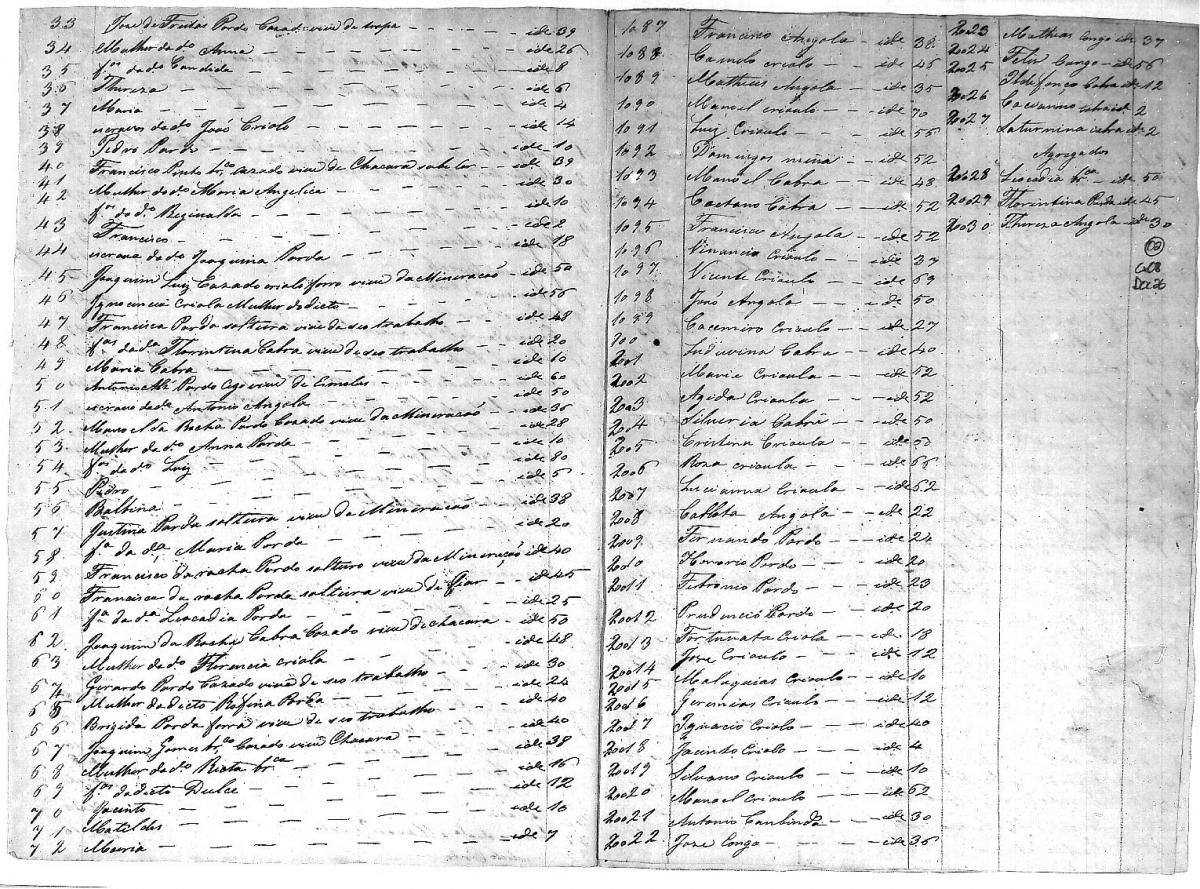 33 Joze de Freitas Pardo Cazado vive de tropa — ide 39
34 Mulher do do. Anna — — — ide 26
35 fa. do do. Candida — — — ide 8
36 Thereza — — — ide 6
37 Maria — — — ide 4
38 escravo do do. João Criolo — — — ide 14
39 Pedro Pardo — — — ide 10
40 Francisco Pinto br.co cazado vive de Chacara — ide 39
41 Mulher do do. Maria Angelica — — — ide 30
42 fo. do do. Reginalda — — — ide 10
43 Francisco — — — ide 2
44 escrava do do Joaquina Parda — — — ide 18
45 Joaquim Luiz Cazado criolo forro vive da Mineracaõ — ide 50
46 Ignocencia Criola Mulher do dicto — — ide 56
47 Francisca Parda solteira vive de seo trabalho — ide 48
48 fas. da da. Florintina Cabra vive de seo trabalho — ide 20
49 Maria Cabra — — — ide 10
50 Antonio Pardo Cego vive de Esmolas — ide 60
51 escravo do do. Antonio Angola — — ide 50
52 Manoel da Rocha Pardo Cazado vive da Mineracaõ — ide 36
53 Mulher do do. Anna Parda — — — ide 28
54 fos. do do. Luiz — — — ide 10
55 Pedro — — —
56 Balbina — — — ide 5
57 Justina Parda solteira vive da Mineracaõ — ide 38
58 fa. da da. Maria Parda — — — ide 20
59 Francisco da rocha Pardo solteiro vive da Mineração ide 40
60 Francisca da rocha Parda solteira vive de fiar — ide 45
61 fa. da da. Leocadia Parda — — — ide 25
62 Joaquim da Rocha Cabra Cazado vive de chacara — ide 50
63 Mulher do do Florencia criola — — — ide 48
64 Gerardo Pardo Cazado vive de seo trabalho — ide 30
65 Mulher do dicto Rufina Parda — — ide 24
66 Brizida Parda forra vive de seo trabalho — ide 40
67 Joaquim Gomes br.co Cazado vive Chacara — ide 40
68 Mulher do do. Rita br.ca — — — ide 38
69 fos. do dicto Dulce — — — ide 16
70 Jacinto — — — ide 12
71 Matildes — — — ide 10
72 Maria — — — ide 7
1087 Francisco Angola — ide 38
1088 Camilo criolo — ide 45
1089 Matheus Angola — ide 35
1090 Manoel crioulo — ide 70
1091 Luiz Crioulo — — ide 56
1092 Domingos mina — ide 52
1093 Manoel Cabra — ide 48
1094 Caetano Cabra — ide 52
1095 Francisco Angola — ide 52
1096 Vinancio Crioulo — ide 37
1097 Vicente Crioulo — ide 69
1098 José Angola — ide 50
1099 Cacemiro Crioulo — ide 27
100 Luduvina Cabra — ide 40
2001 Maria Crioula — ide 52
2002 Agida Crioula — ide 52
2003 Silveria Cabra — ide 50
2004 Cristina Crioula — ide 50
2005 Roza crioula — — ide 66
2006 Lucianna Crioula — ide 62
2007 Angola — ide 22
2008 Fernando Pardo — ide 24
2009 Honorio Pardo — ide 20
20010 Pardo — ide 23
20011 Prudencio Pardo — ide 20
20012 Fortunata Criola — ide 18
20013 Joze Crioulo — ide 12
20014 Malaquias Crioulo — ide 10
20015 Geremias Crioulo — ide 12
20016 Ignacio Criolo — ide 40
20017 Jacinto Criolo — — ide 4
20018 Silvano Crioulo — ide 10
20019 Manoel crioulo — ide 62
20020 Antonio — ide 30
20021 Joze Congo — — ide 36
20022
2023 Matheus Congo ide 37
20024 Felis Congo — ide 56
20025 Ildefonco Cabra ide 12
20026 Caevanno cabra ide 2
20027 Saturnina cabra ide 2
Agregados
20028 Leocadia br.ca — ide 50
20029 Florintina Parda ide 45
20030 Thereza Angola — ide 30